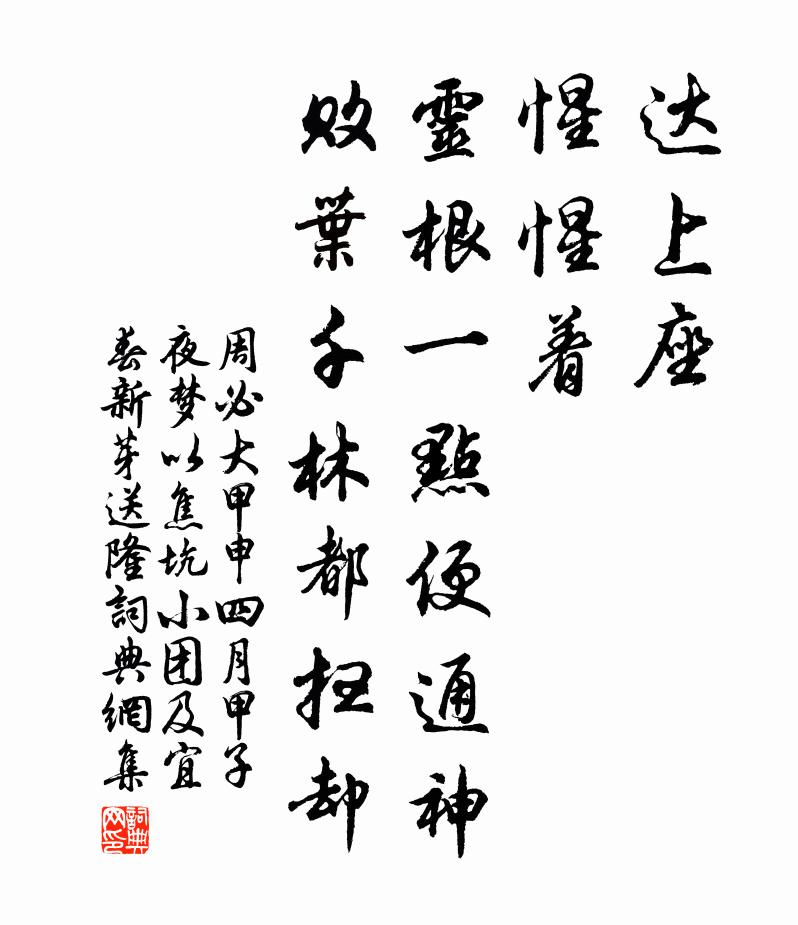 达上座
惺惺着
靈根一點便通神
败葉千林都抂却
周必大甲申四月甲子
夜梦以焦坑小团及宜
春新芽送隆詞典網集
詞典网印